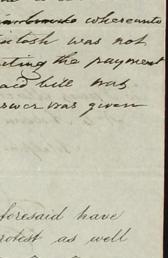 whereunto
intosh was not
cting the payment
said bill was
swer was given
foresaid have
rotest as well